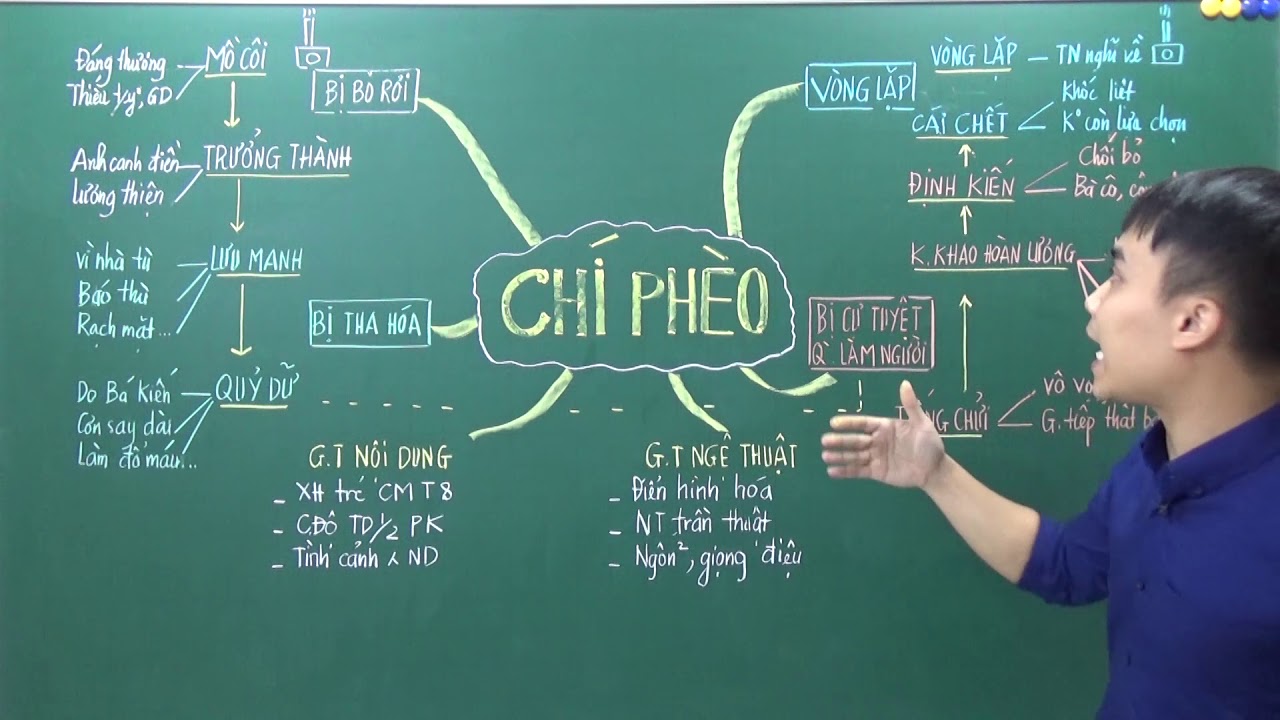 MỒ CÔI
Đáng thương
Thiếu t/y, GD
BỊ BỎ RƠI
TRƯỞNG THÀNH
Anh canh điền
lương thiện
LƯU MANH
vì nhà tù
Báo thù
Rạch mặt...
BỊ THA HÓA
QUỶ DỮ
Do Bá Kiến
Cơn say dài
Làm đổ máu...
CHÍ PHÈO
G.T NỘI DUNG
- XH trc CMT8
- CĐộ TD 1/2 PK
- Tình cảnh ND
G.T NGỆ THUẬT
- Điển hình hóa
- NT trần thuật
- Ngôn², giọng điệu
VÒNG LẶP
VÒNG LẶP - TN nghĩ về
CÁI CHẾT
Khốc liệt
K° còn lựa chọn
ĐỊNH KIẾN
Chối bỏ
Bà cô,
K. KHAO HOÀN LƯƠNG
BỊ CỰ TUYỆT
Q` LÀM NGƯỜI
CHỬI
G. tiếp thất